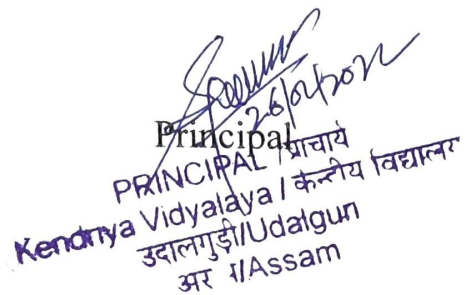 26/04/2022
Principal
PRINCIPAL / प्राचार्य
Kendriya Vidyalaya / केन्द्रीय विद्यालय
उदालगुड़ी/Udalguri
/Assam